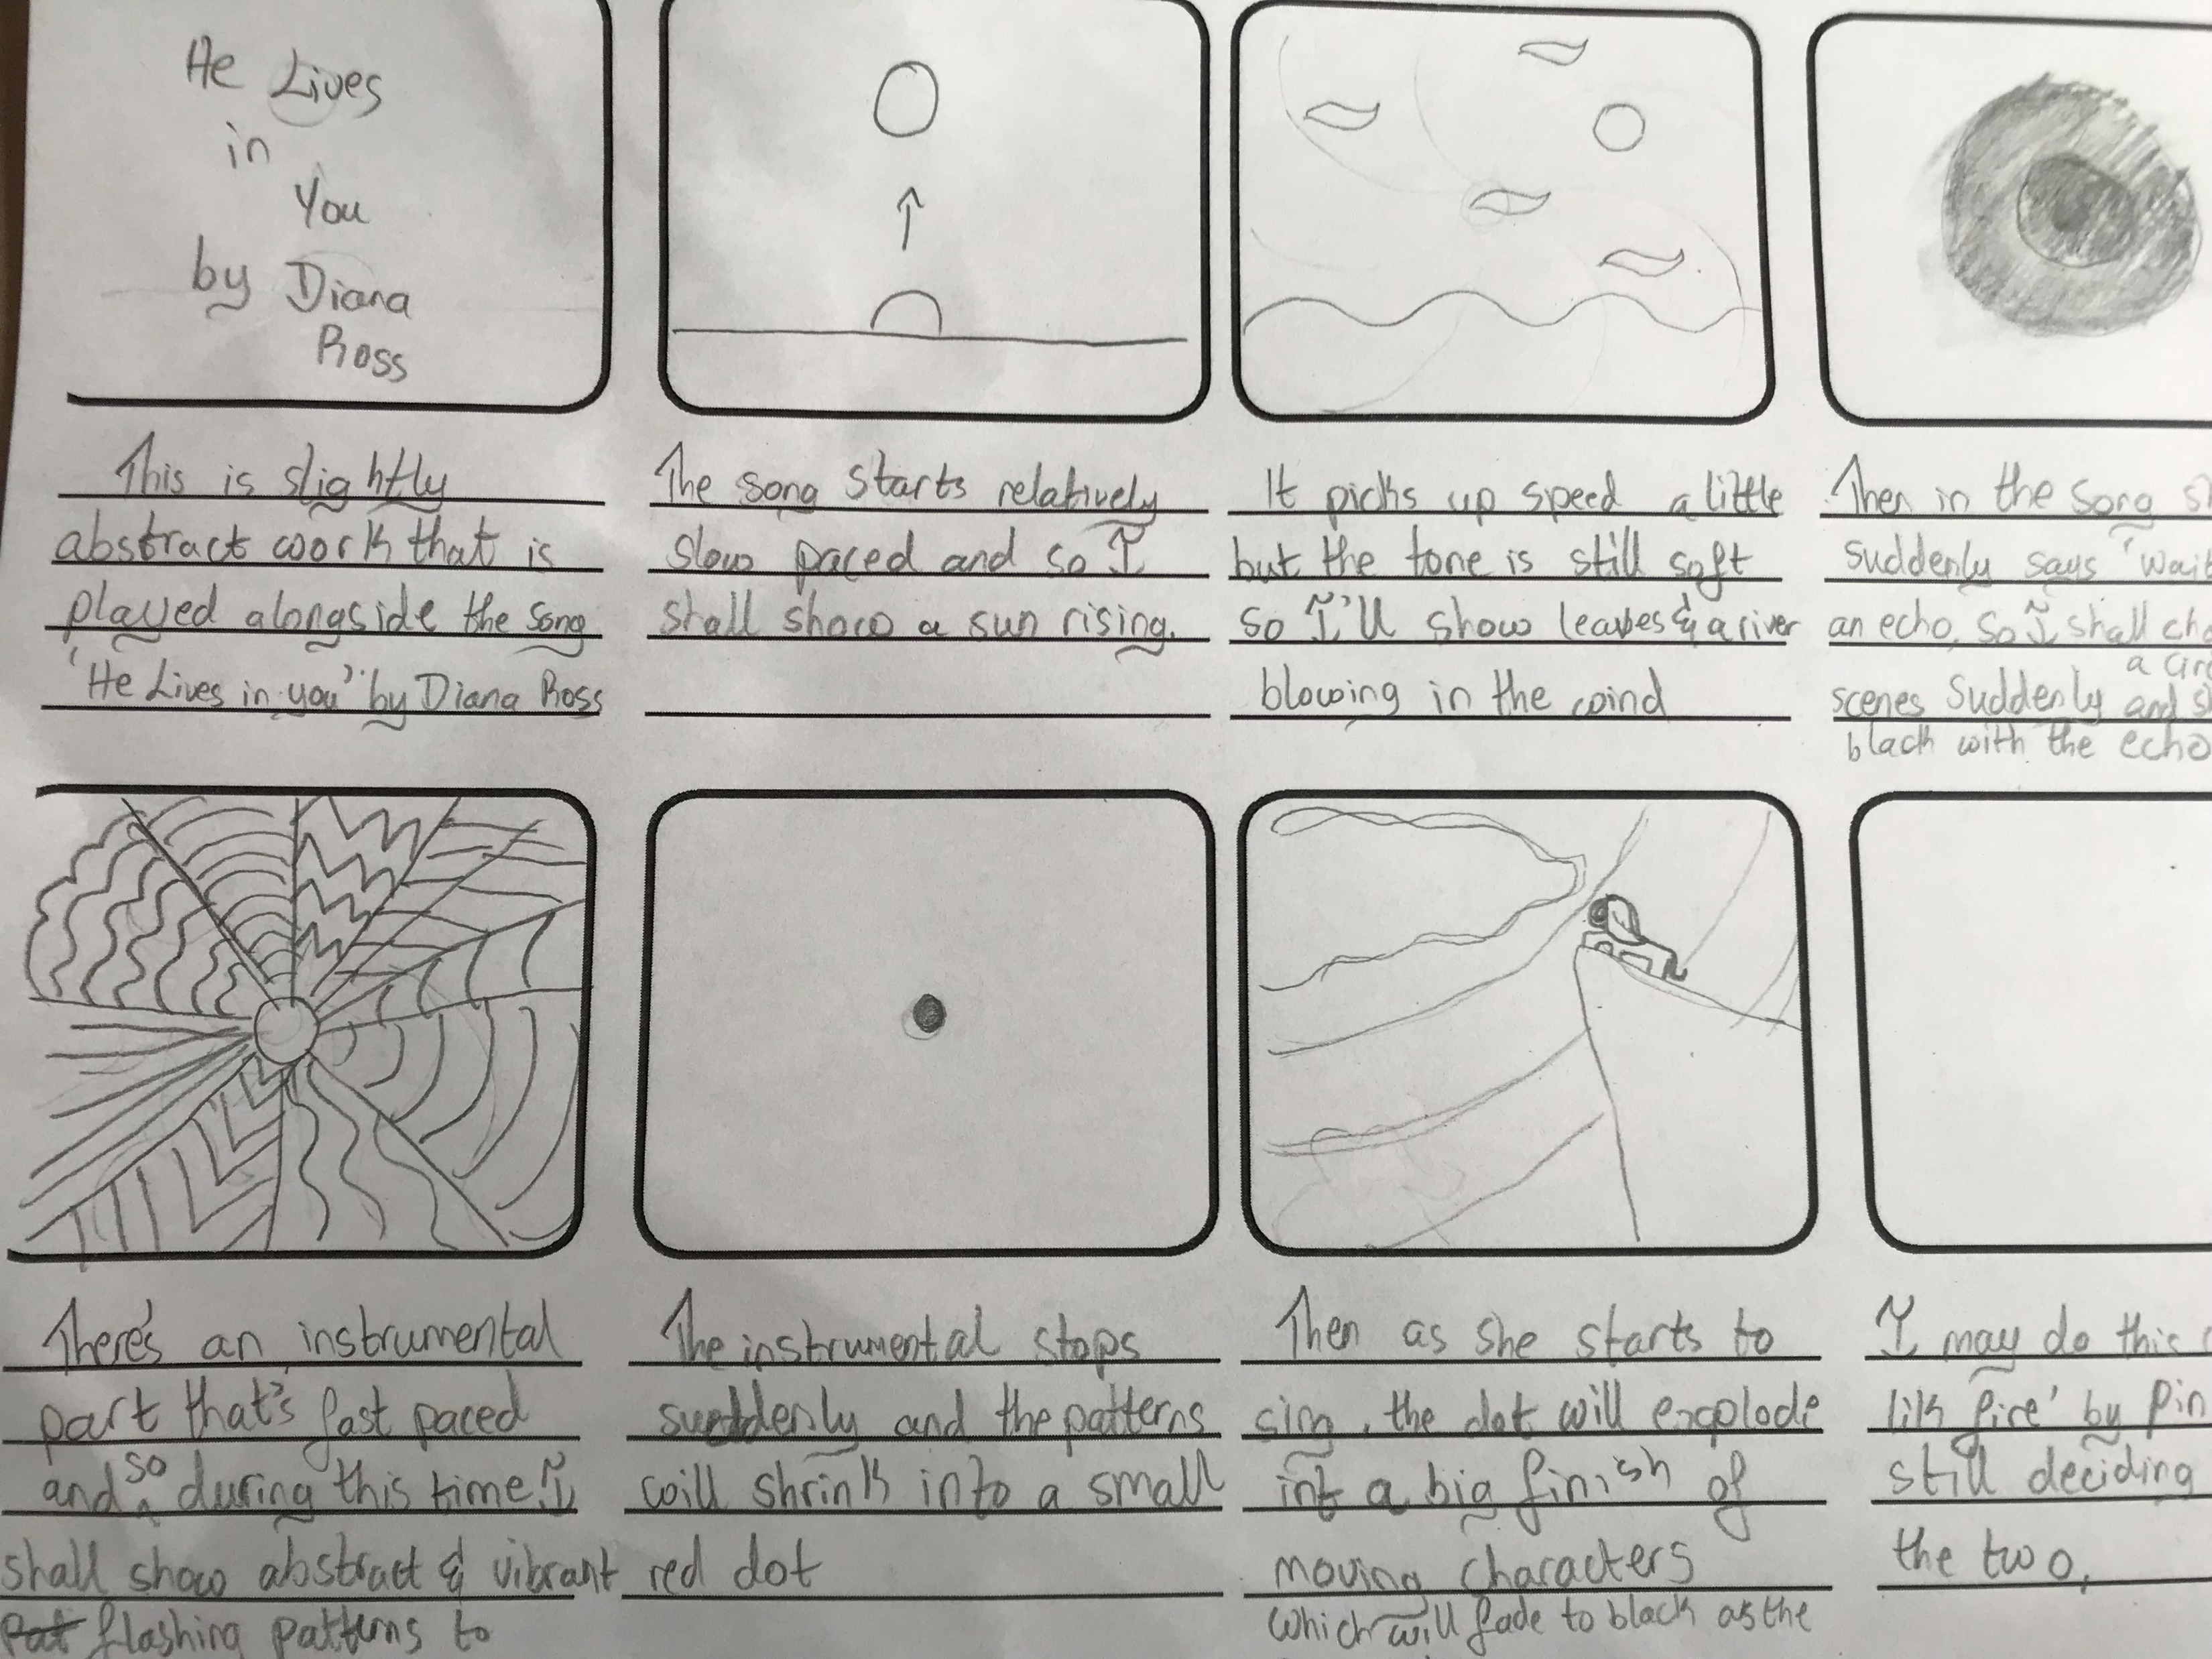 He Lives
in
You
by Diana
Ross
This is slightly
abstract work that is
played alongside the song
'He Lives in you' by Diana Ross
The song starts relatively
slow paced and so I
shall show a sun rising.
It picks up speed a little
but the tone is still soft
so I'll show leaves & a river
blowing in the wind
Then in the song
suddenly says 'wait
an echo, so I shall
a
scenes suddenly and
black with the echo
There's an instrumental
part that's fast paced
and so during this time I
shall show abstract & vibrant
flashing patterns to
The instrumental stops
suddenly and the patterns
will shrink into a small
red dot
Then as she starts to
sing, the dot will explode
int a big finish of
moving characters
which will fade to black as the
I may do this
lik fire' by
still deciding
the two,